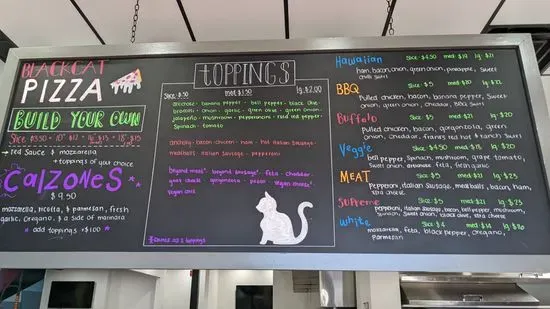 BLACKCAT
PIZZA
BUILD YOUR OWN
Slice $3.50 • 10" $12 • 14" $15 • 18" $15
→ red sauce & mozzarella
+ toppings of your choice
CalZoneS
$9.50
mozzarella, ricotta, & parmesan, fresh
garlic, oregano, & a side of marinara
* add toppings +$1.00
TOPPINGS
Slice $.50 med $1.50 lg $2.00
artichoke • banana pepper • bell pepper • black olive
broccoli • onion • garlic • green olive • green onion
jalapeño • mushroom • pepperoncini • roasted red pepper
Spinach • tomato
anchovy • bacon • chicken • ham • hot italian sausage
meatballs • italian sausage • pepperoni
beyond meat* • beyond sausage* • feta • cheddar
goat cheese • gorgonzola • pesto • vegan cheese*
vegan
* counts as 2 toppings
Hawaiian Slice $4.50 med $19 lg $21
ham, bacon, onion, green onion, pineapple, sweet
chili swirl
BBQ Slice $5 med $20 lg $22
Pulled chicken, bacon, banana pepper, Sweet
onion, green onion, cheddar, BBQ Swirl
Buffalo Slice $5 med $21 lg
Pulled chicken, bacon, gorgonzola, green
onion, cheddar, franks red hot & ranch Swirl
Veggie Slice $4.50 med $18 lg $20
bell pepper, Spinach, mushroom, grape tomato,
Sweet onion, feta & garlic
MEAT Slice $5 med $21 lg $23
Pepperoni, italian Sausage, meatballs, bacon, ham,
xtra cheese
SUPReme Slice $5 med $21 lg $23
pepperoni, italian Sausage, bacon, bell pepper, mushroom,
Spinach, Sweet onion, black olive, xtra cheese
white Slice $4 med $14 lg
mozzarella, feta, black pepper, oregano,
Parmesan